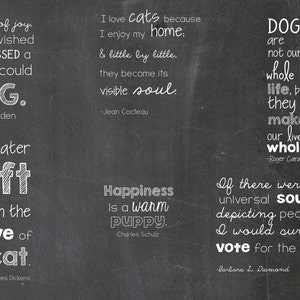 of joy.
vished
SSED a
could
G.
den
I love cats because
I enjoy my home;
& little by little,
they become its
visible soul.
-Jean Cocteau
DOG
are
not our
whole
life, b
they
make
our live
whole
-Roger Cara
ater
ft
n the
ve of
cat.
arles Dickens
Happiness
is a warm
puppy.
-Charles Schulz
If there were
universal sou
depicting peac
I would sur
vote for the
-Barbara L. Diamond